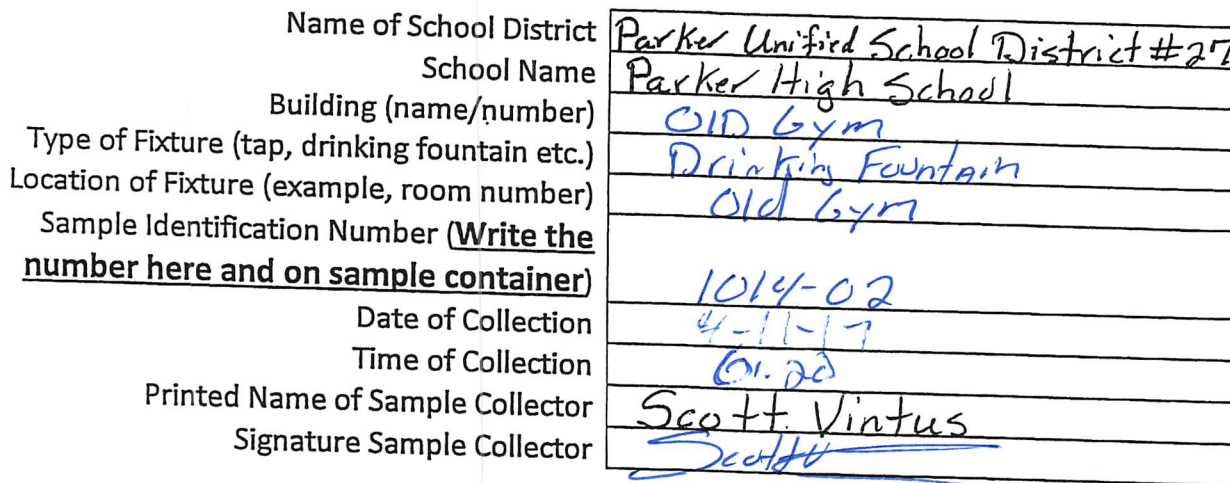 Name of School District Parker Unified School District #27
School Name Parker High School
Building (name/number) OlD Gym
Type of Fixture (tap, drinking fountain etc.) Drinking Fountain
Location of Fixture (example, room number) Old Gym
Sample Identification Number (Write the
number here and on sample container) 1014-02
Date of Collection 4-11-17
Time of Collection
Printed Name of Sample Collector Scott Vintus
Signature Sample Collector